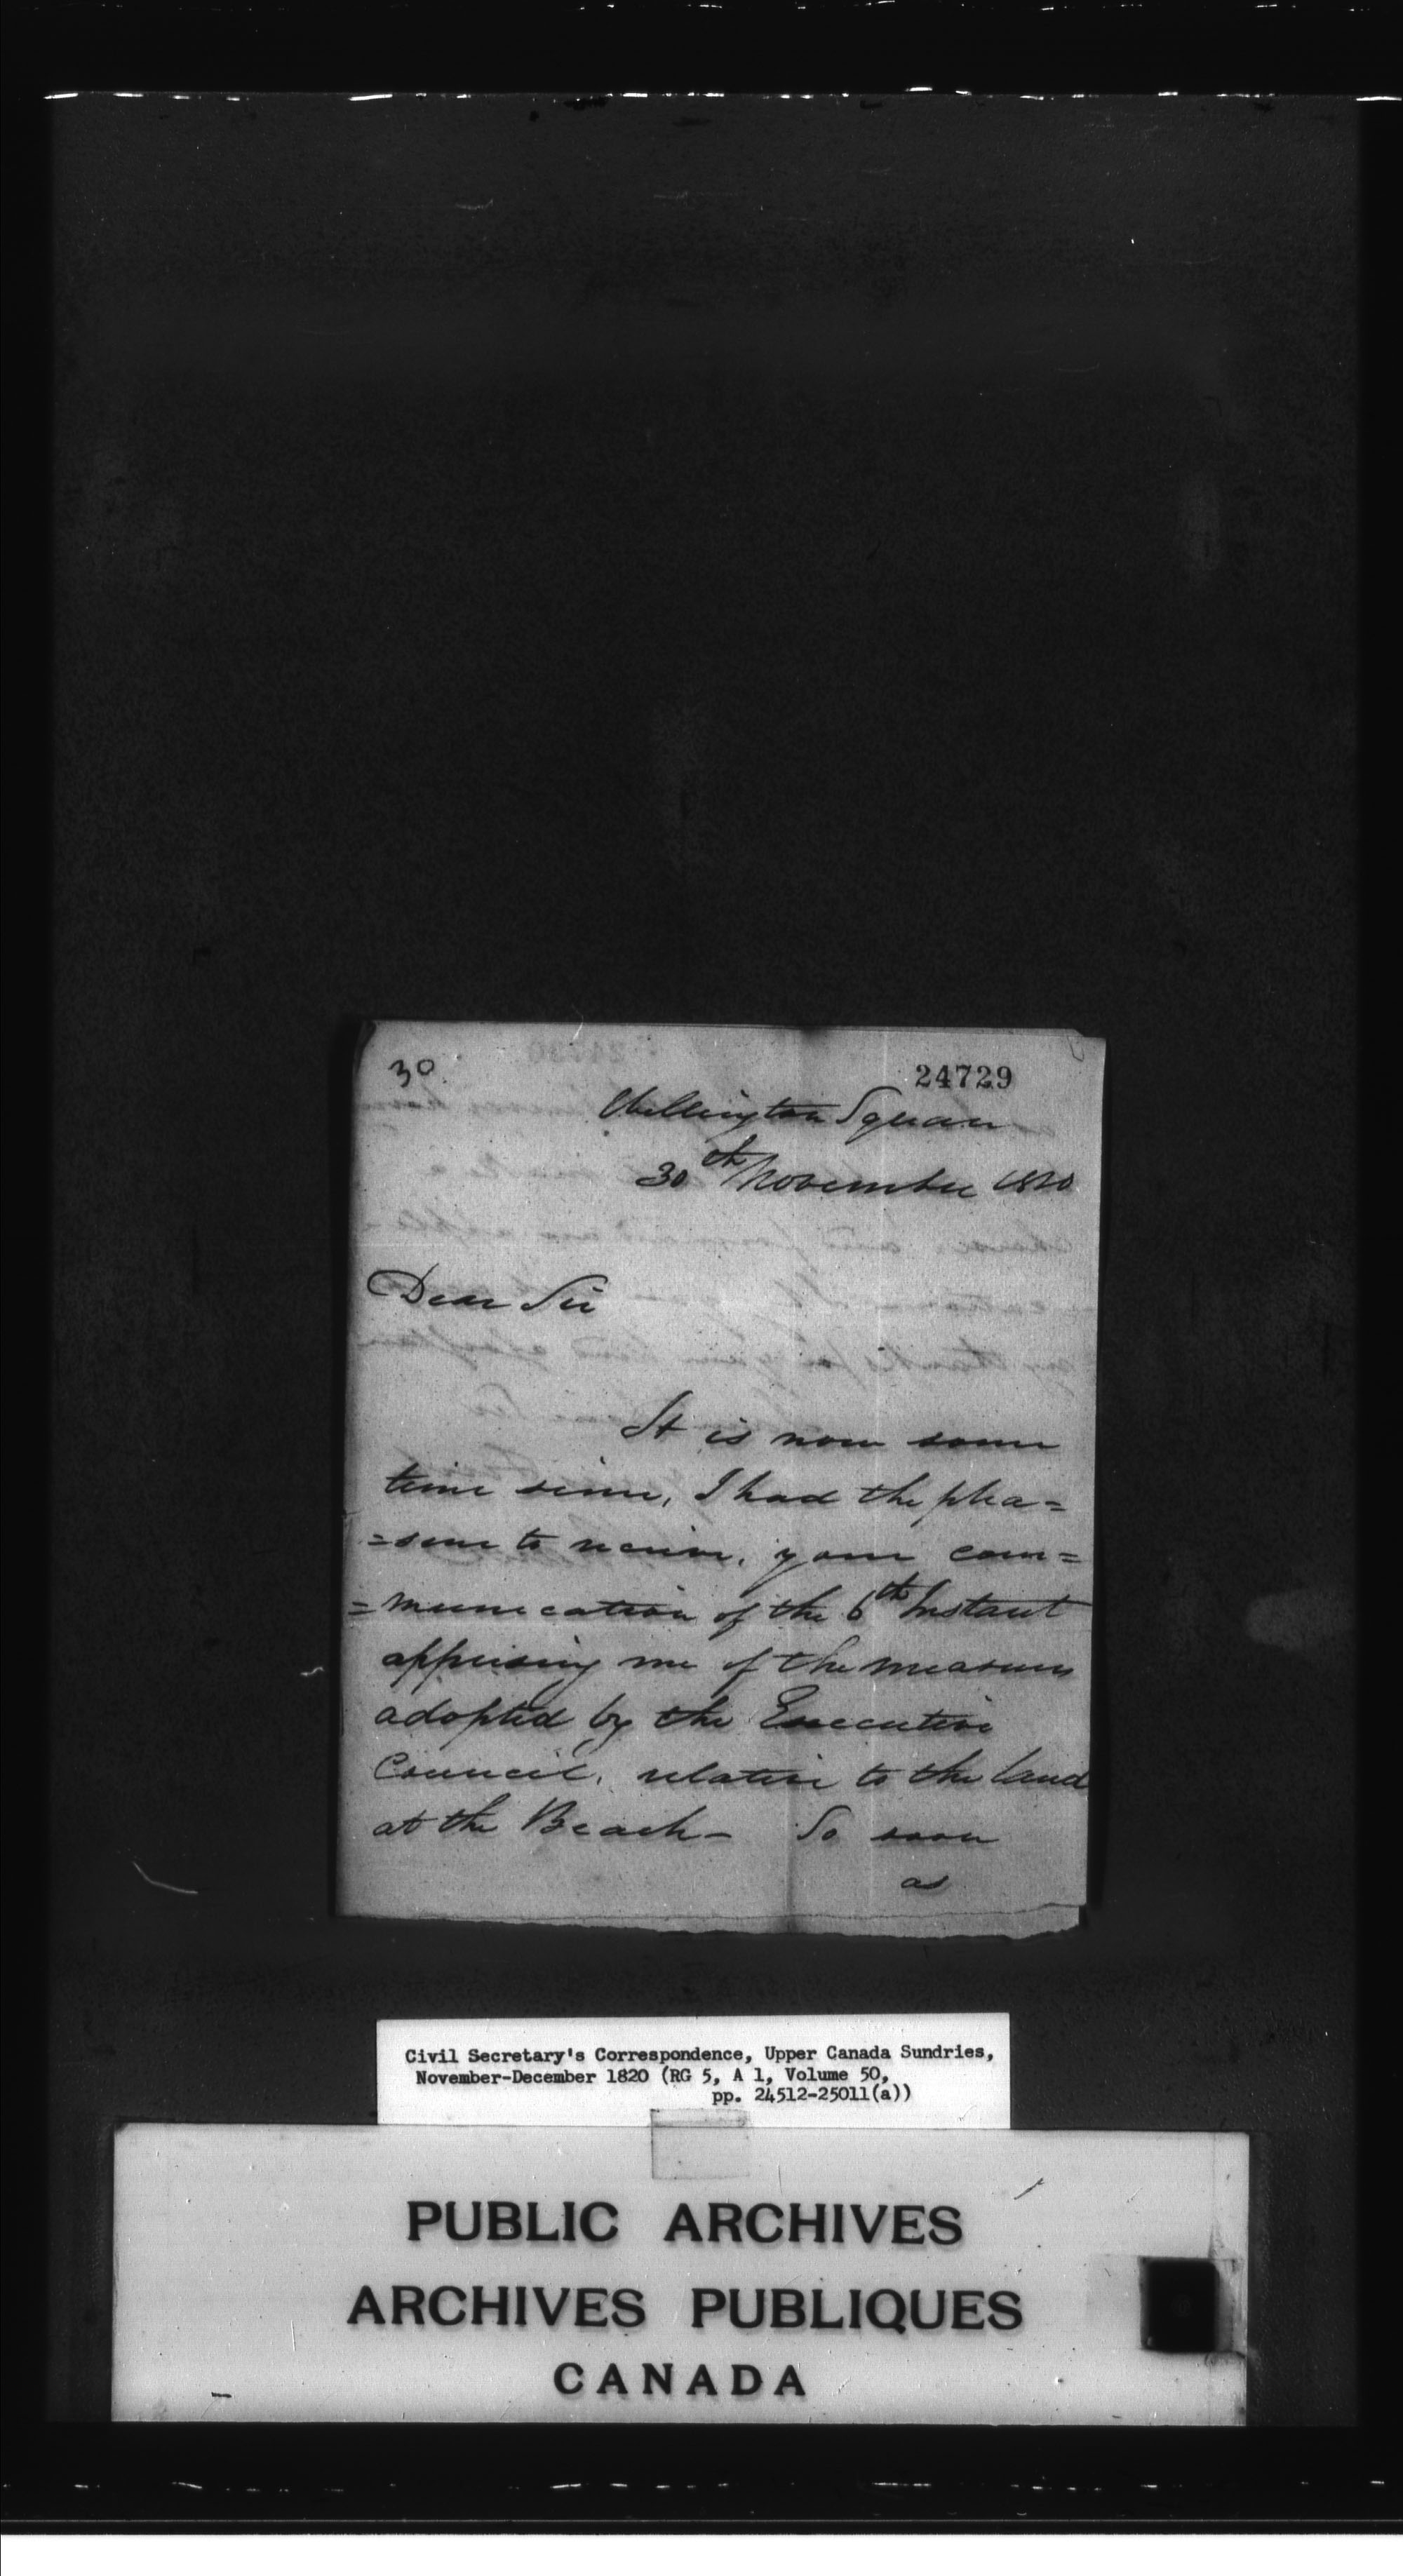 30
24729
Wellington Square
30th November 1820
Dear Sir
It is now some
time since, I had the plea=
=sure to receive, your com=
=munication of the 6th Instant
apprising me of the measures
adopted by the Executive
Council, relative to the land
at the Beach- So soon
as
Civil Secretary's Correspondence, Upper Canada Sundries,
November-December 1820 (RG 5, A 1, Volume 50,
pp. 24512-25011(a))
PUBLIC ARCHIVES
ARCHIVES PUBLIQUES
CANADA